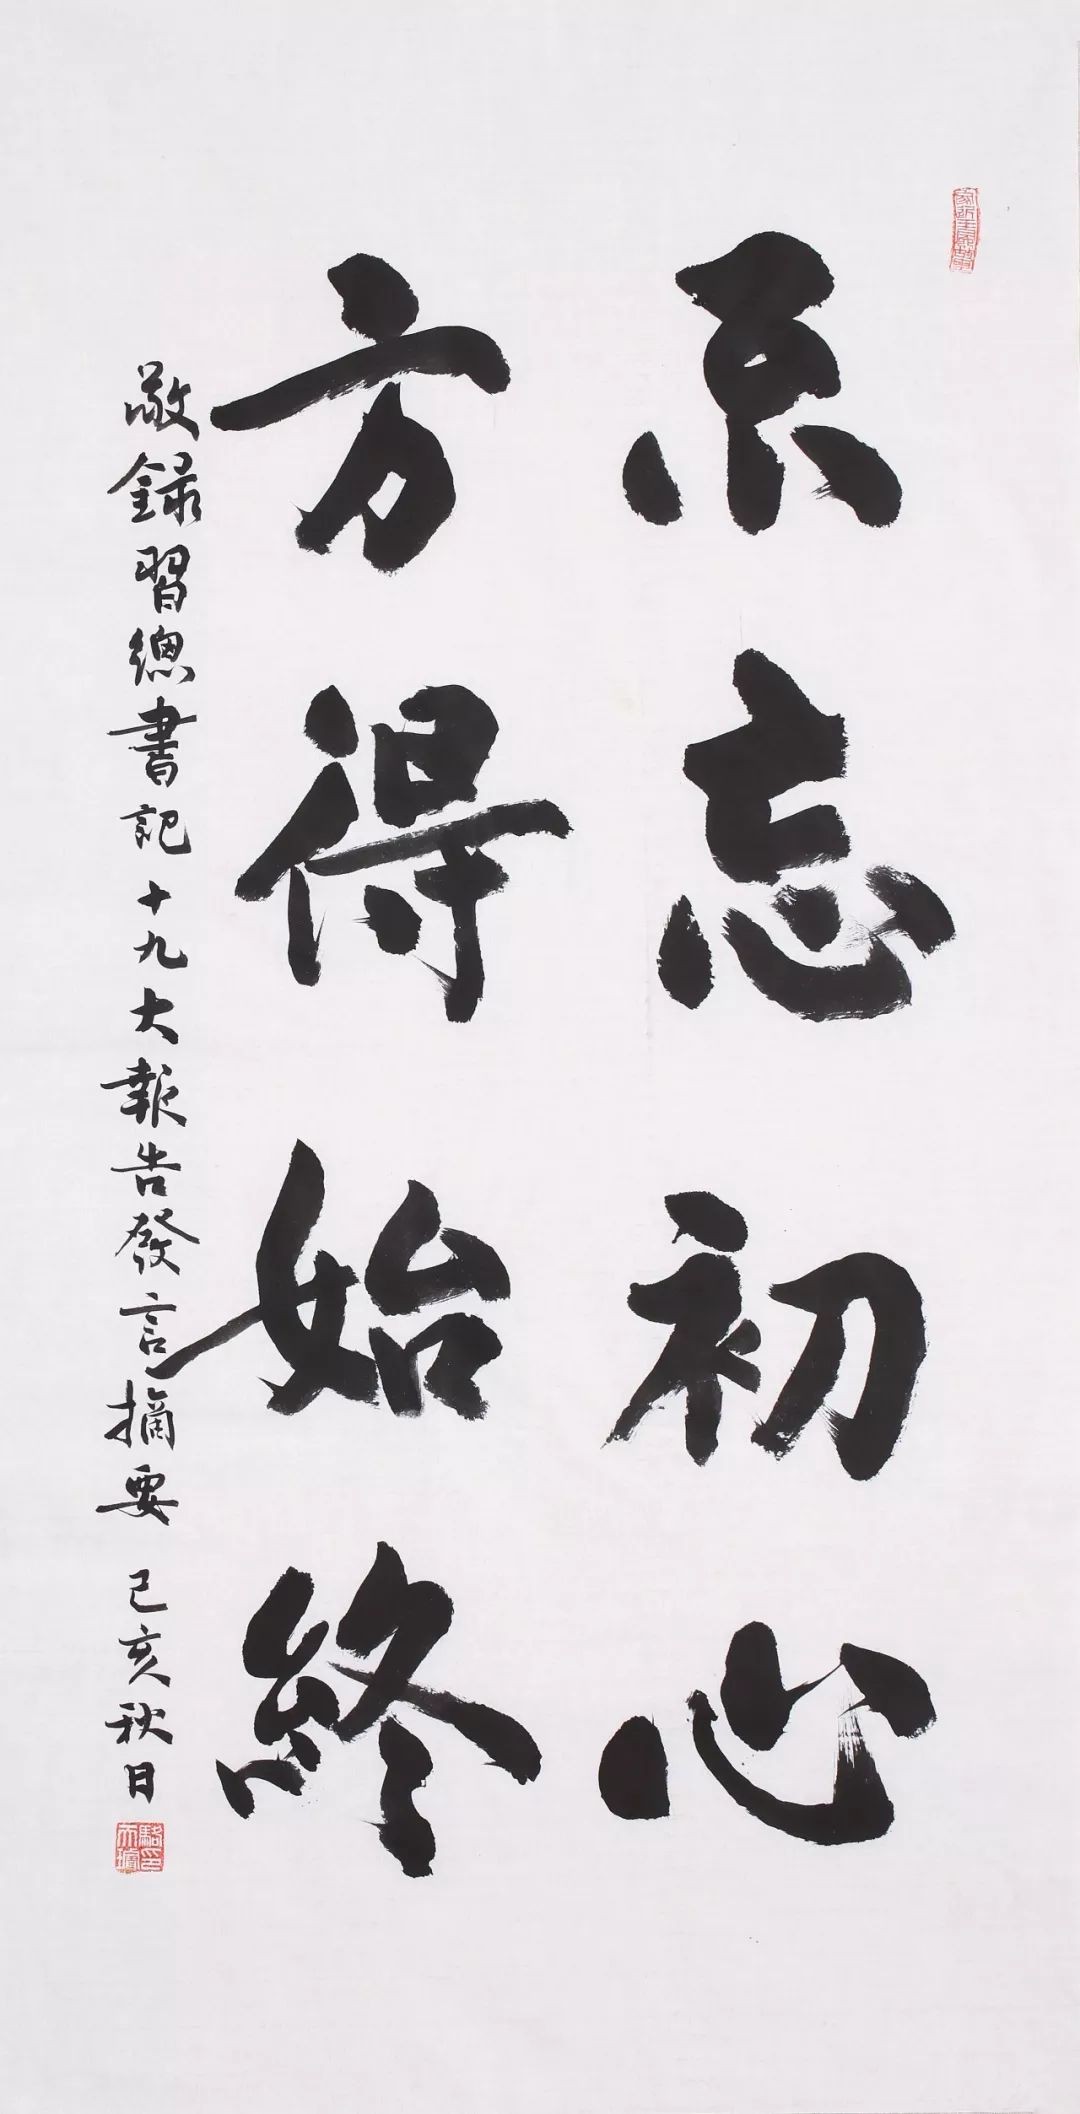 不忘初心
方得始終
敬錄習總書記十九大報告發言摘要 己亥秋日